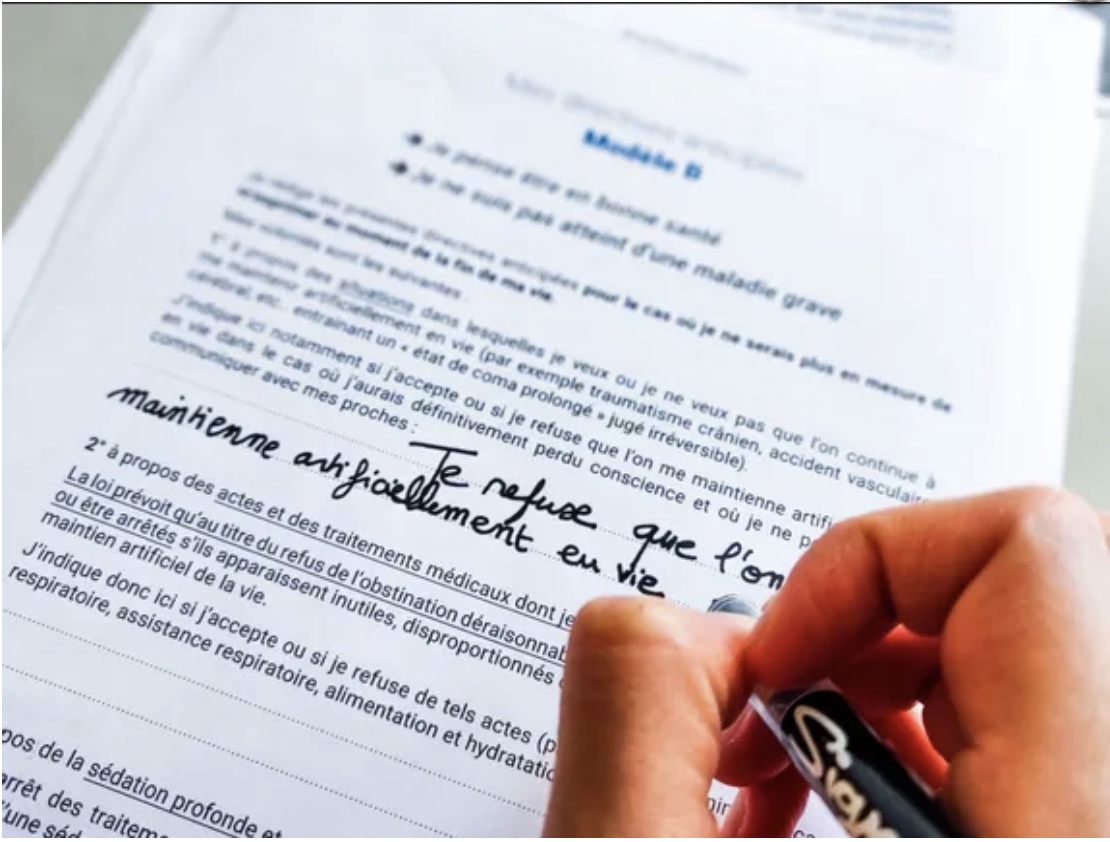 Mes directives anticipées
Modèle B
➔ Je pense être en bonne santé
➔ Je ne suis pas atteint d'une maladie grave
Je rédige les présentes directives anticipées pour le cas où je ne serais plus en mesure de
m'exprimer au moment de la fin de ma vie.
Mes volontés sont les suivantes :
1° à propos des situations dans lesquelles je veux ou je ne veux pas que l'on continue à
me maintenir artificiellement en vie (par exemple traumatisme crânien, accident vasculaire
cérébral, etc. entrainant un « état de coma prolongé » jugé irréversible).
J'indique ici notamment si j'accepte ou si je refuse que l'on me maintienne artifi
en vie dans le cas où j'aurais définitivement perdu conscience et où je ne p
communiquer avec mes proches :
Je refuse que l'on
maintienne artificiellement en vie
2° à propos des actes et des traitements médicaux dont je
La loi prévoit qu'au titre du refus de l'obstination déraisonnab
ou être arrêtés s'ils apparaissent inutiles, disproportionnés
maintien artificiel de la vie.
J'indique donc ici si j'accepte ou si je refuse de tels actes (p
respiratoire, assistance respiratoire, alimentation et hydratatio
pos de la sédation profonde et
arrêt des traiteme
d'une séd